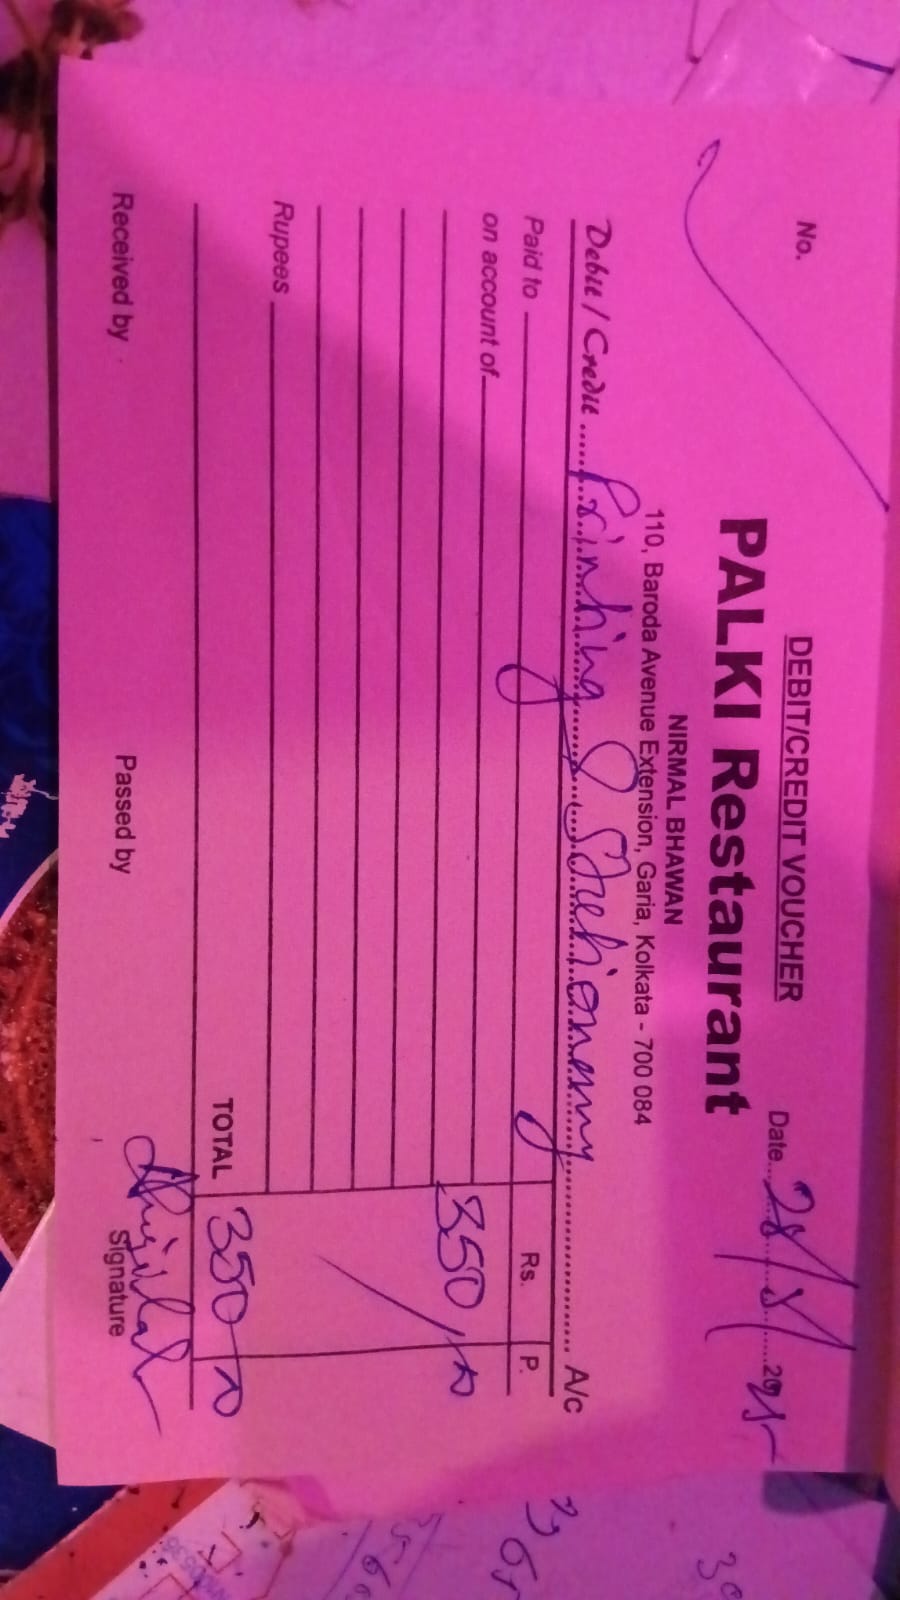 DEBIT/CREDIT VOUCHER
No.
Date 28/8/2025
PALKI Restaurant
NIRMAL BHAWAN
110, Baroda Avenue Extension, Garia, Kolkata - 700 084
Debit / Credit Printing & Stationary A/c
Paid to Rs. P.
on account of
350/00
Rupees
TOTAL 350 00
Received by Passed by Signature